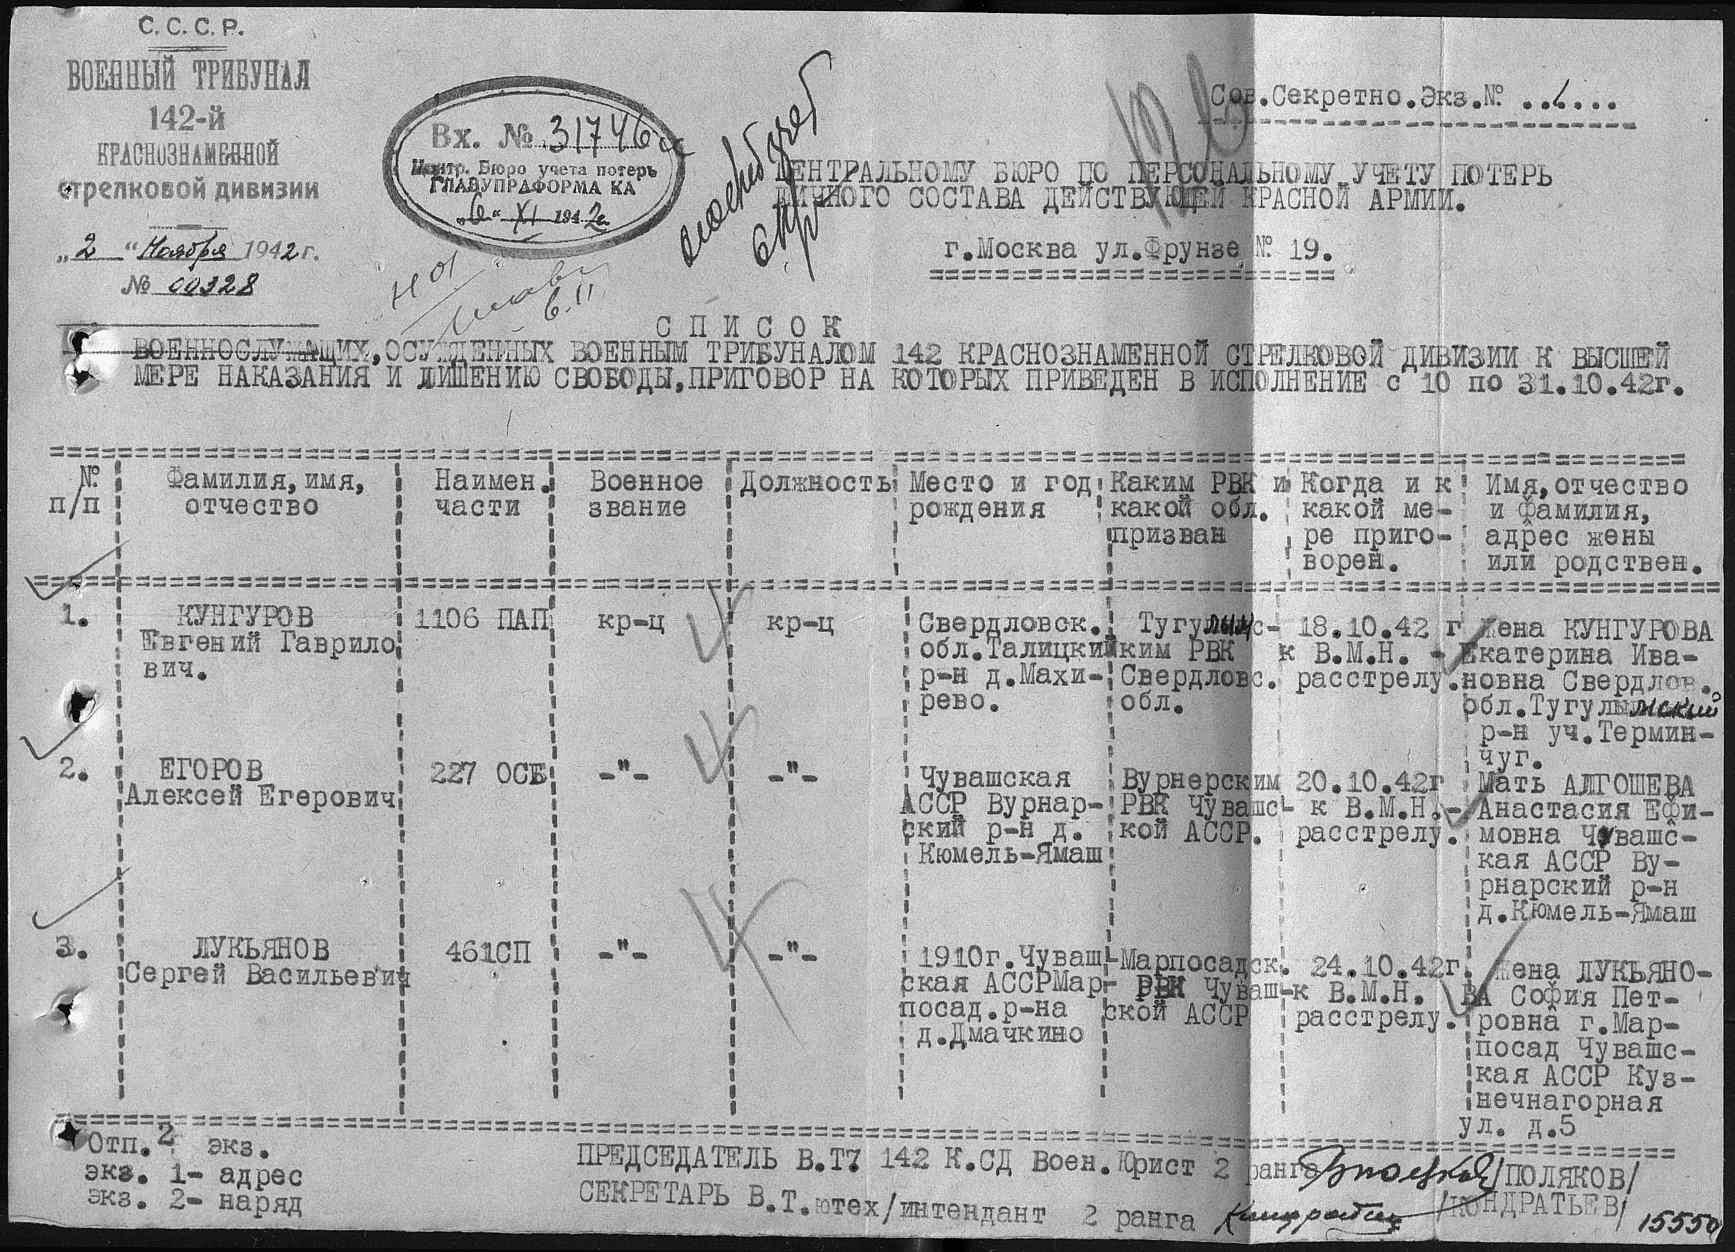 С.С.С.Р.
ВОЕННЫЙ ТРИБУНАЛ
142-й
КРАСНОЗНАМЕННОЙ
стрелковой дивизии
„2“ Ноября 1942г.
№ 00328
Вх. № 31746с
Центр. Бюро учета потерь
ГЛАВУПРАФОРМА КА
„6“ XI 1942г
6.11
Сов.Секретно.Экз.№ ..1...
ЦЕНТРАЛЬНОМУ БЮРО ПО ПЕРСОНАЛЬНОМУ УЧЕТУ ПОТЕРЬ
ЛИЧНОГО СОСТАВА ДЕЙСТВУЮЩЕЙ КРАСНОЙ АРМИИ.
г.Москва ул.Фрунзе № 19.
С П И С О К
ВОЕННОСЛУЖАЩИХ,ОСУЖДЕННЫХ ВОЕННЫМ ТРИБУНАЛОМ 142 КРАСНОЗНАМЕННОЙ СТРЕЛКОВОЙ ДИВИЗИИ К ВЫСШЕЙ
МЕРЕ НАКАЗАНИЯ И ЛИШЕНИЮ СВОБОДЫ,ПРИГОВОР НА КОТОРЫХ ПРИВЕДЕН В ИСПОЛНЕНИЕ с 10 по 31.10.42г.
№
п/п
Фамилия,имя,
отчество
Наимен.
части
Военное
звание
Должность
Место и год
рождения
Каким РВК и
какой обл.
призван
Когда и к
какой ме-
ре приго-
ворен.
Имя,отчество
и фамилия,
адрес жены
или родствен.
1.
КУНГУРОВ
Евгений Гаврило
вич.
1106 ПАП
кр-ц
кр-ц
Свердловск.
обл.Талицкий
р-н д.Махи-
рево.
Тугулымс-
ким РВК
Свердловс.
обл.
18.10.42 г
к В.М.Н. -
расстрелу.
Жена КУНГУРОВА
Екатерина Ива-
новна Свердлов.
обл.Тугулымский
р-н уч.Термин-
чуг.
2.
ЕГОРОВ
Алексей Егерович
227 ОСБ
-"-
-"-
Чувашская
АССР Вурнар-
ский р-н д.
Кюмель-Ямаш
Вурнерским
РВК Чувашс-
кой АССР.
20.10.42г
к В.М.Н.-
расстрелу.
Мать АЛГОШЕВА
Анастасия Ефи-
мовна Чувашс-
кая АССР Ву-
рнарский р-н
д.Кюмель-Ямаш
3.
ЛУКЬЯНОВ
Сергей Васильевич
461СП
-"-
-"-
1910г.Чуваш-
ская АССРМар-
посад.р-на
д.Дмачкино
Марпосадск.
РВК Чуваш-
ской АССР
24.10.42г.
к В.М.Н.
расстрелу.
Жена ЛУКЬЯНО-
ВА София Пет-
ровна г.Мар-
посад Чувашс-
кая АССР Куз-
нечнагорная
ул. д.5
Отп. 2 экз.
экз. 1- адрес
экз. 2- наряд
ПРЕДСЕДАТЕЛЬ В.Т7 142 К.СД Воен.Юрист 2 ранга /ПОЛЯКОВ/
СЕКРЕТАРЬ В.Т.ютех/интендант 2 ранга /КОНДРАТЬЕВ/
15550